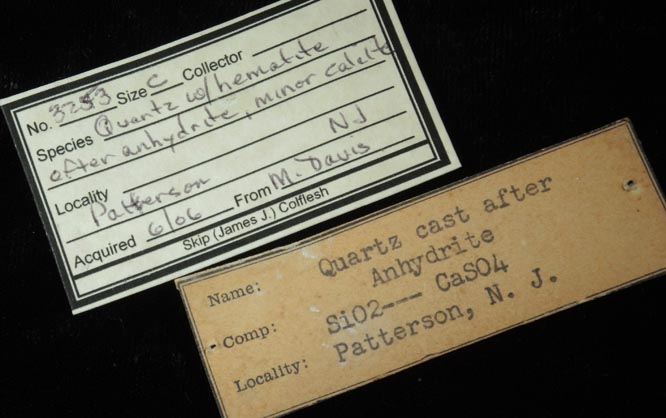 No. 3253 Size C Collector
Species Quartz w/hematite
after anhydrite, minor calcite
Locality NJ
Patterson
Acquired 6/06 From M. Davis
Skip (James J.) Colflesh
Name: Quartz cast after
Anhydrite
Comp: SiO2--- CaSO4
Locality: Patterson, N. J.